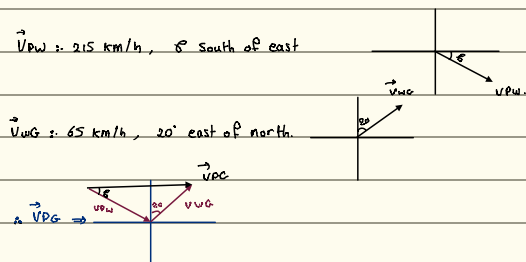 V⃗PW :- 215 km/h, θ south of east
θ
VPW
V⃗WG
20
V⃗WG :- 65 km/h, 20° east of north.
V⃗PG
θ
VPW
20
VWG
∴ V⃗PG ⇒